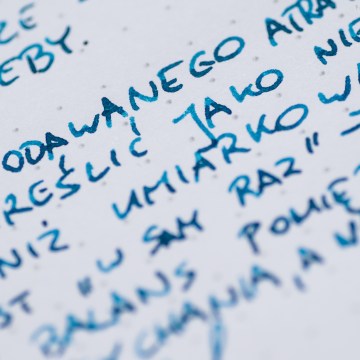 ZE
EBY.
ODAWANEGO ATRA
REŚLIĆ JAKO NIE
NIŻ UMIARKOW
ST "W SAM RAZ" –
BALANS POMIĘ
YCHANIA, A W